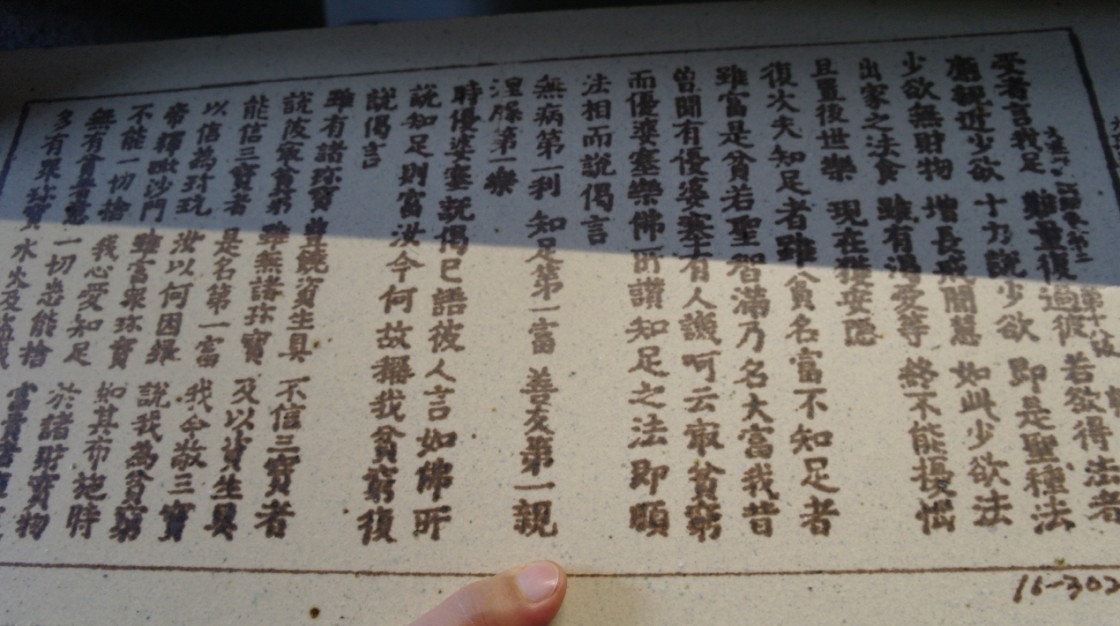 受者言我足 難量復過彼 若欲得法者
廟親近少欲 十力說少欲 即是聖種法
少欲無財物 增長戒聞慧 如此少欲法
出家之法食 雖有渴愛等 終不能擾惱
且置後世樂 現在獲安隱
復次夫知足者雖貧名富不知足者
雖富是貧若聖智滿乃名大富我昔
曾聞有優婆塞有人譏呵云㝡貧窮
而優婆塞樂佛所讚知足之法即順
法相而說偈言
無病第一利 知足第一富 善友第一親
涅槃第一樂
時優婆塞說偈已語彼人言如佛所
說知足則富汝今何故稱我貧窮復
說偈言
雖有諸珍寶 豐饒資生具 不信三寶者
說彼㝡貧窮 雖無諸珍寶 及以資生具
能信三寶者 是名第一富 我今敬三寶
以信為珍玩 汝以何因緣 說我為貧窮
帝釋毗沙門 雖富眾珍寶 如其布施時
不能一切捨 我心愛知足 於諸財寶物
無有貪著意 一切悉能捨 富貴
多有眾珍寶 水火及盜賊
16-302